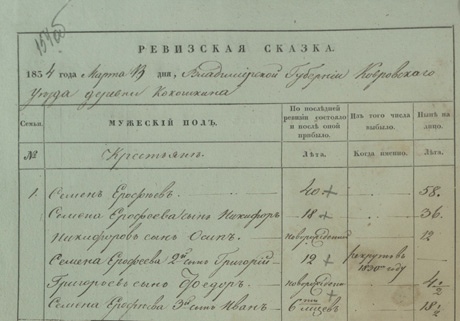 РЕВИЗСКАЯ СКАЗКА.
1834 года Марта 13 дня, Владимирской Губерніи Ковровскаго
Уезда деревни Кокошкина
Семьи. МУЖЕСКІЙ ПОЛЪ. По последней ревизіи состояло и после оной прибыло. Изъ того числа выбыло. Ныне на лицо.
№ Крестьянъ Лета. Когда именно. Лета.
1. Семенъ Ерофеевъ 40 58
Семена Ерофеева сынъ Никифоръ 18 36
Никифоровъ сынъ Осипъ новорожденный 12
Семена Ерофеева 2й сынъ Григорій 12 рекрутовъ 1830 году
Григорьевъ сынъ Федоръ новорожденный 4 1/2
Семена Ерофеева 3й сынъ Иванъ 6ти 18 1/2